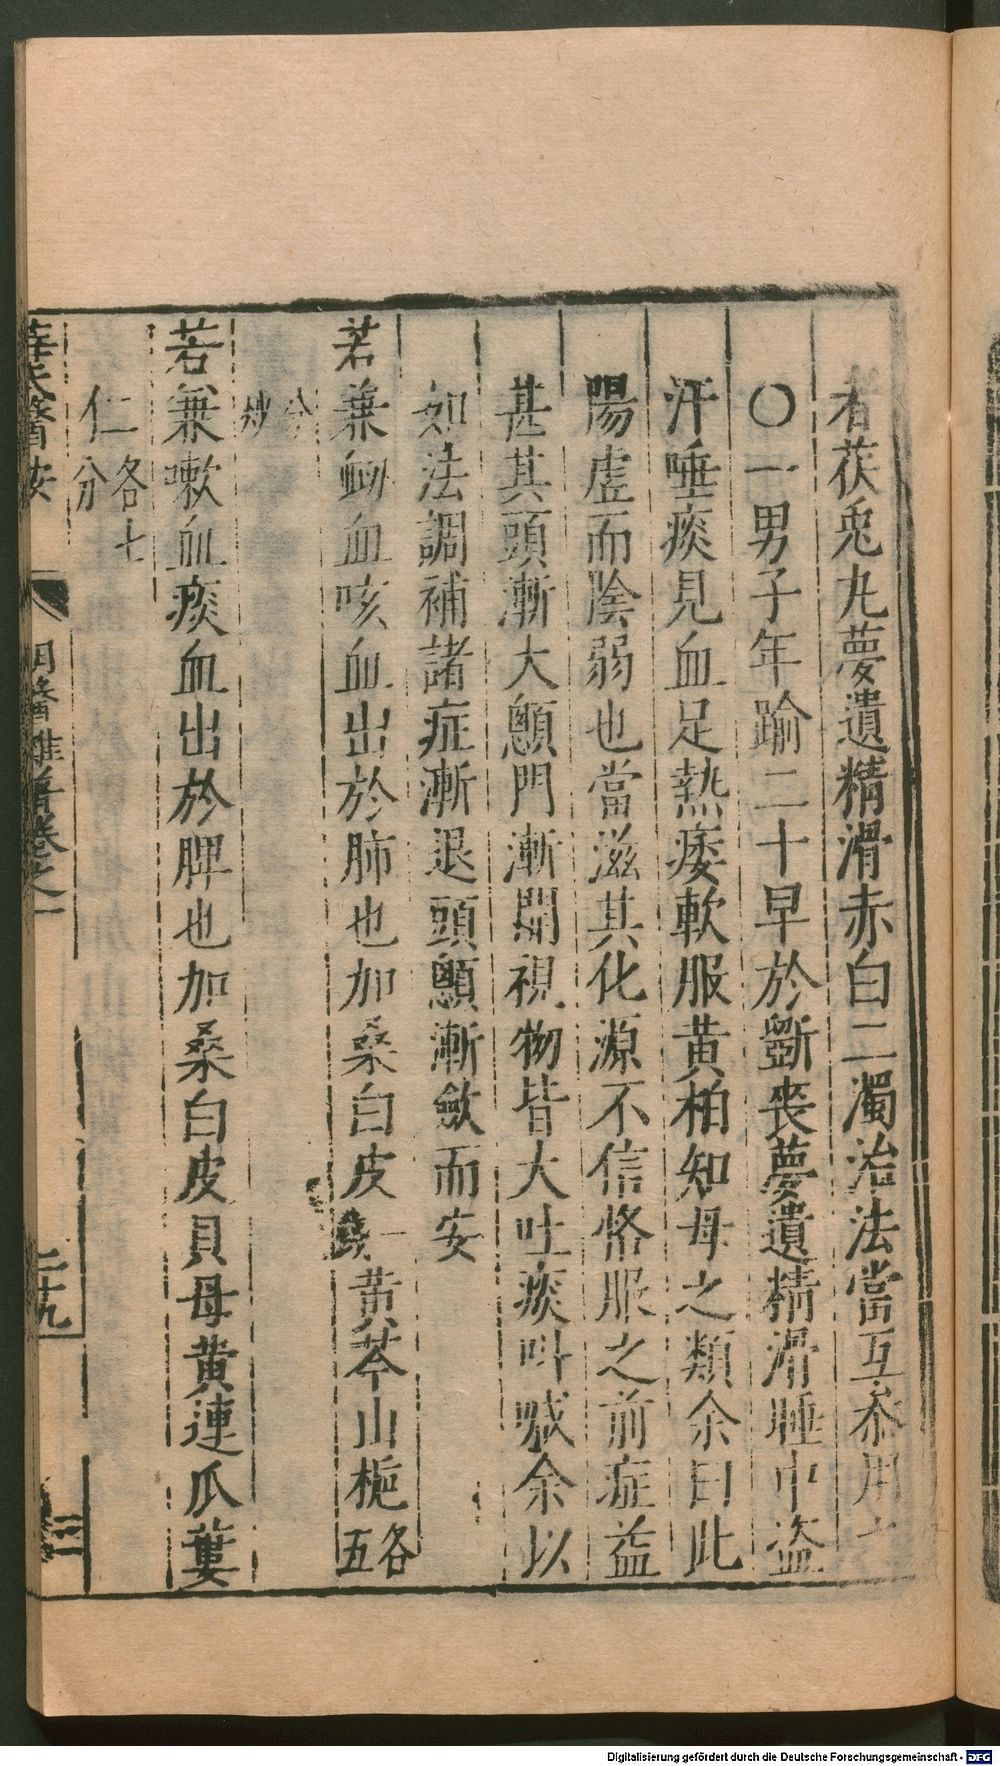 者茯兎丸夢遺精滑赤白二濁治法當互叅用
〇一男子年踰二十早於斵丧夢遺精滑睡中盗
汗唾痰見血足熱痿軟服黄柏知母之類余曰此
陽虚而陰弱也當滋其化源不信恪服之前症益
甚其頭漸大顖門漸開視物皆大吐痰呌喊余以
如法調補諸症漸退頭顖漸斂而安
若兼衂血咳血出於肺也加桑白皮一錢黄芩山梔各五
分炒
若兼嗽血痰血出於脾也加桑白皮貝母黄連瓜蔞
仁各七分
薛氏醫案 明醫雜著卷之一 二十九
Digitalisierung gefördert durch die Deutsche Forschungsgemeinschaft - DFG